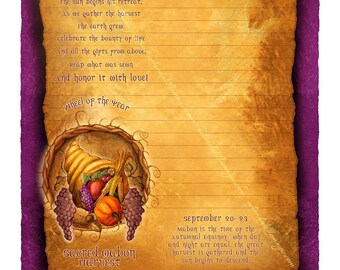 The sun begins its retreat,
As we gather the harvest
The earth grew.
Celebrate the bounty of life
And all the gifts from above,
Reap what was sewn
And honor it with love!
Wheel of the Year
Sacred Mabon
Harvest
September 20-23
Mabon is the time of the
autumnal equinox, when day
and night are equal. The great
harvest is gathered and the
sun begins to descend.